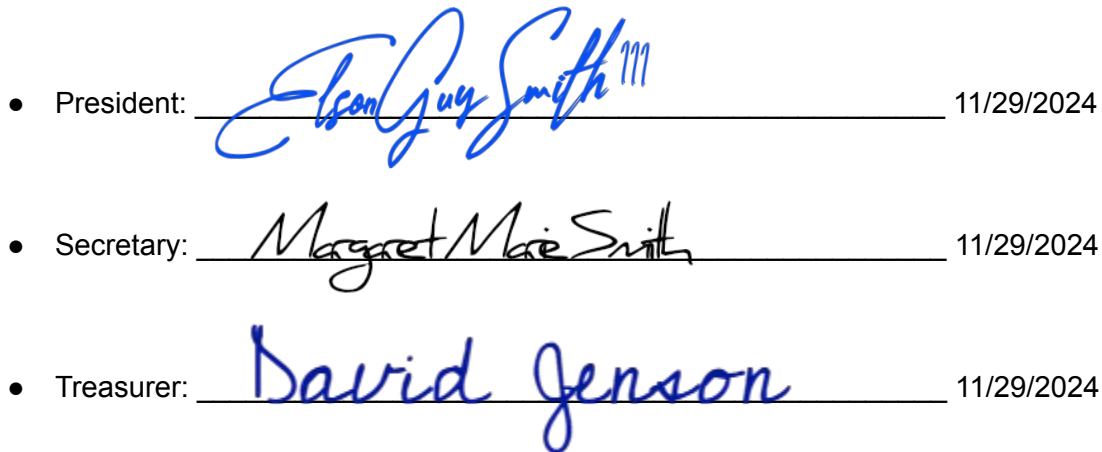 ● President: Elson Guy Smith III 11/29/2024
● Secretary: Margaret Marie Smith 11/29/2024
● Treasurer: David Jenson 11/29/2024